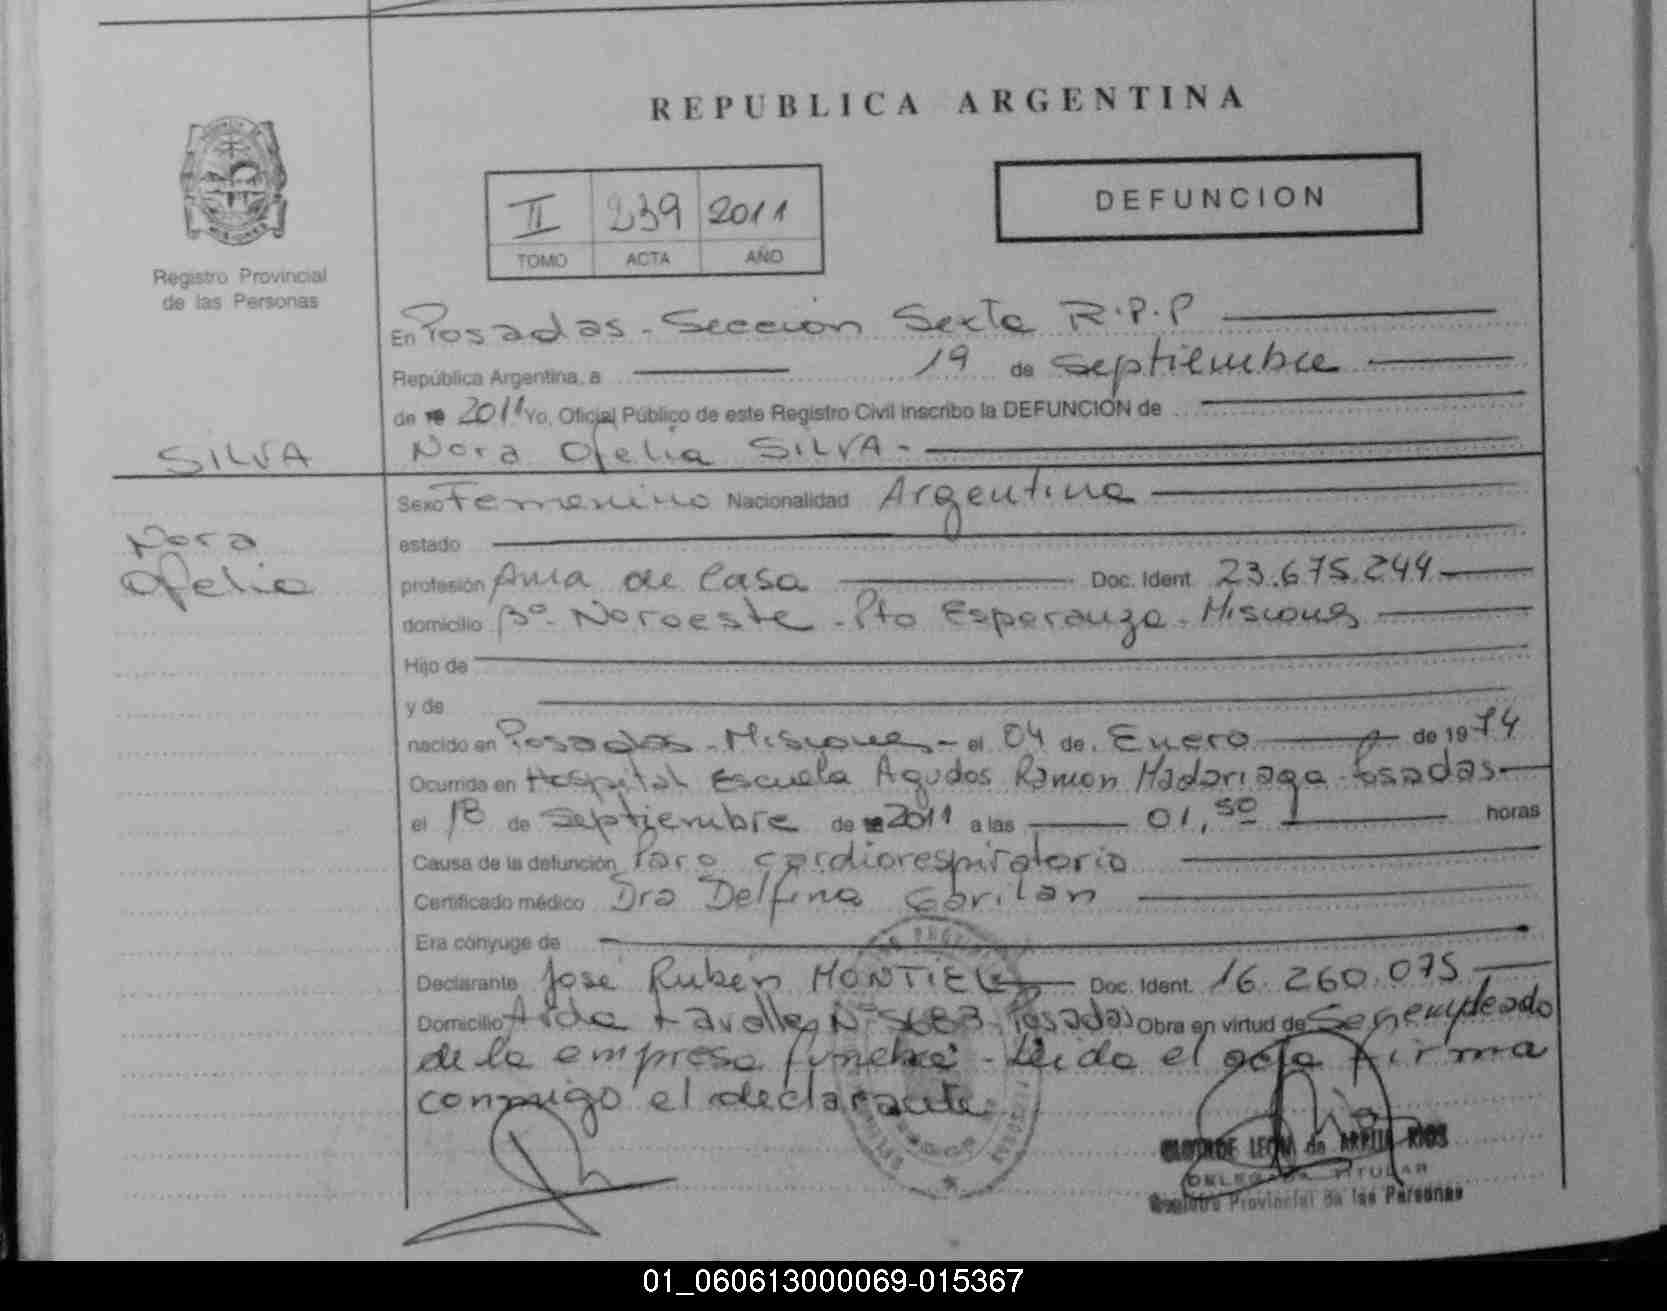 REPUBLICA ARGENTINA
Registro Provincial
de las Personas
II 239 2011
TOMO ACTA AÑO
DEFUNCION
En Posadas - Sección Sexta R.P.P
República Argentina, a 19 de Septiembre
de 2011 Yo, Oficial Público de este Registro Civil inscribo la DEFUNCION de
SILVA
Nora Ofelia SILVA -
Nora
Ofelia
Sexo Femenino Nacionalidad Argentina
estado
profesión Ama de Casa Doc. Ident. 23.675.244
domicilio Bº Noroeste - Pto Esperanza - Misiones
Hijo de
y de
nacido en Posadas - Misiones - el 04 de Enero de 1974
Ocurrida en Hospital Escuela Agudos Ramon Madariaga - Posadas
el 18 de Septiembre de 2011 a las 01,50 horas
Causa de la defunción Paro cardiorespiratorio
Certificado médico Dra Delfina
Era cónyuge de
Declarante José Rubén MONTIEL Doc. Ident. 16.260.075
Domicilio Avda Lavalle Nº 5683 - Posadas Obra en virtud de Ser empleado
de la empresa fúnebre - Leída el acta firma
conmigo el declarante
LEON de RIOS
DELEGADA TITULAR
Registro Provincial de las Personas
01_060613000069-015367